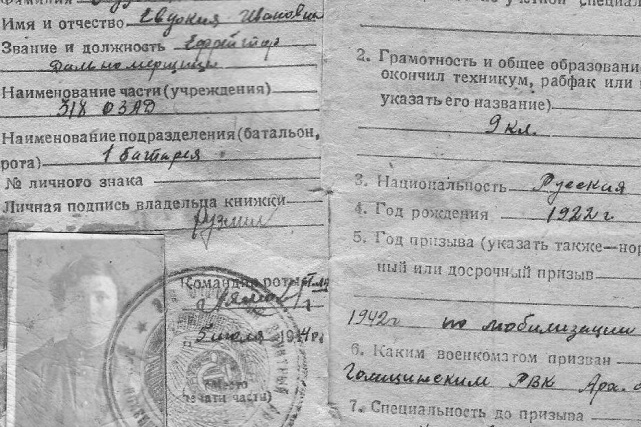 Имя и отчество Евдокия Ивановн
Звание и должность Ефрейтор
Дальномерщицы
Наименование части (учреждения)
318 ОЗАД
Наименование подразделения (батальон,
рота) 1 батарея
№ личного знака
Личная подпись владельца книжки
Командир роты
5 июля 1944 г.
(Место
печати части)
учетной специал
2. Грамотность и общее образовани
окончил техникум, рабфак или
указать его название)
9 кл.
3. Национальность Русский
4. Год рождения 1922 г
5. Год призыва (указать также—нор
ный или досрочный призыв
1942 г по мобилизации
6. Каким военкоматом призван
РВК Арх.
7. Специальность до призыва